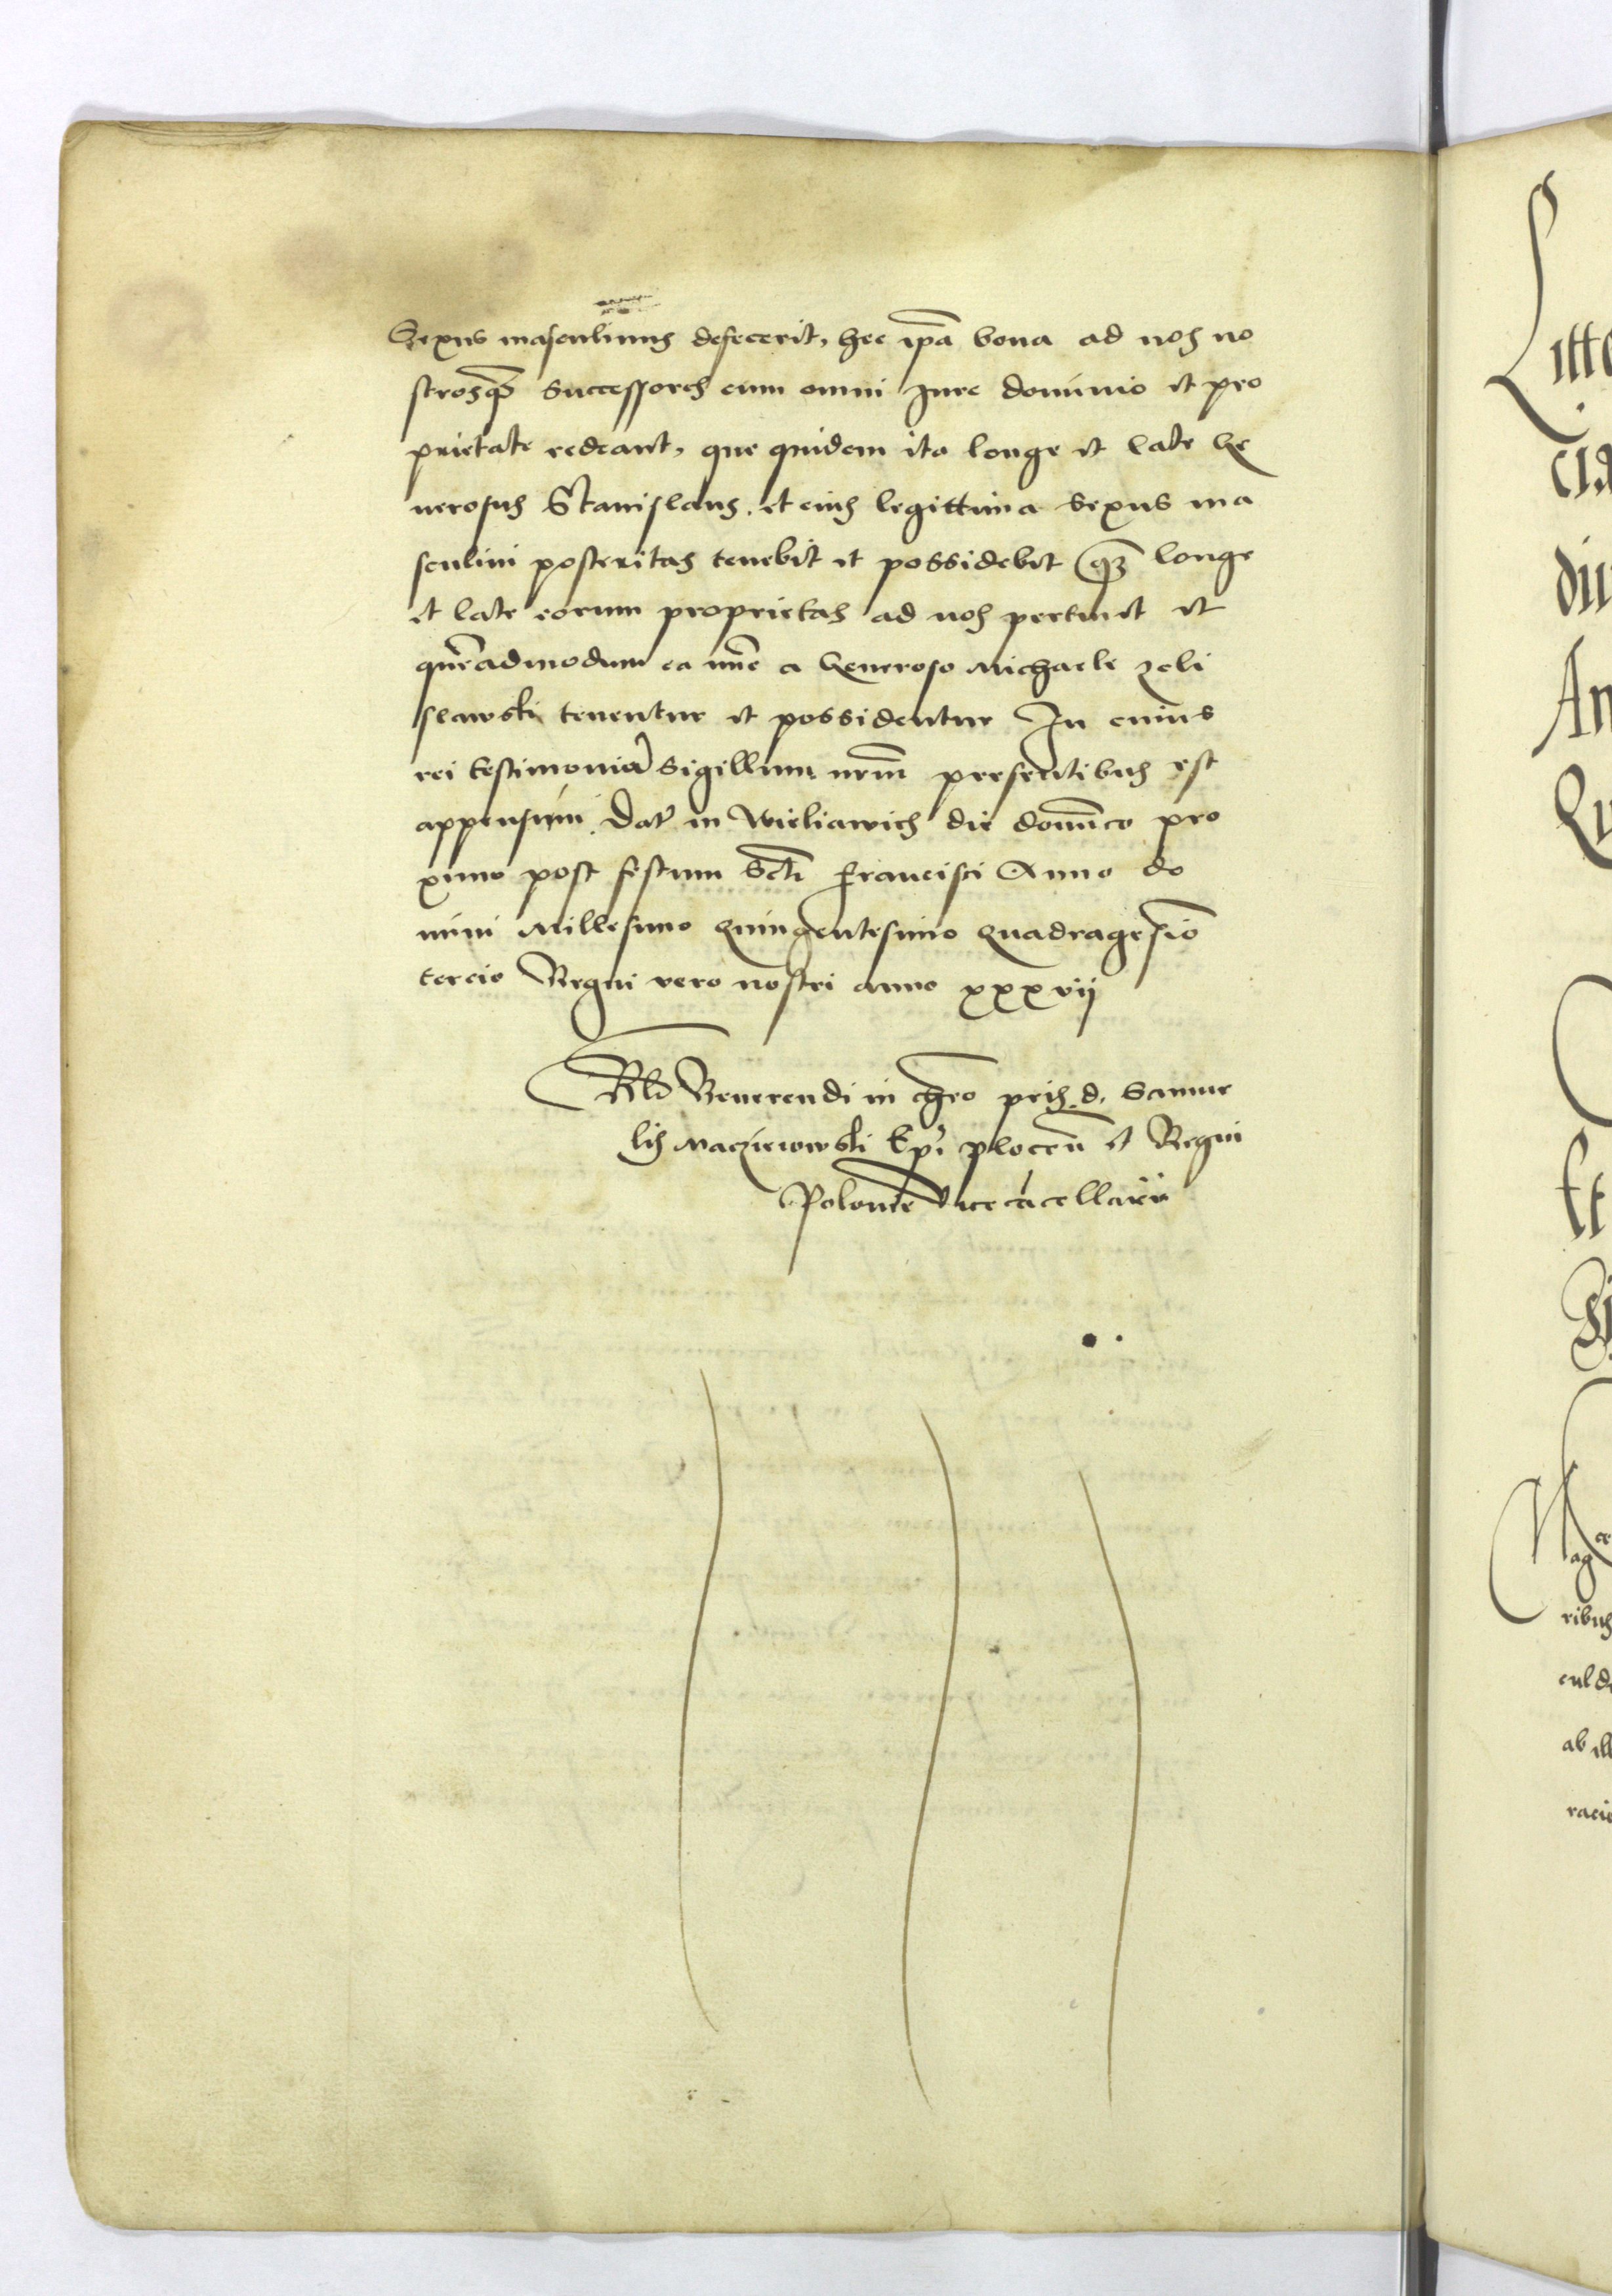 Sexus masculinus defecerit, hec ip̄a bona ad nos no
strosq̃ȝ successores cum omni Jure dominio et pro
prietate redeant, que quidem ita longe et late Ge
nerosus Stanislaus. et eius legittima sexus ma
sculini posteritas tenebit et possidebit q̃ȝ longe
et late eorum proprietas ad nos pertinet et
quēadmodum ea nūc a Generoso Michaele zeli
slawski tenentur et possidentur In cuius
rei testimoniū Sigillum nr̄m presentibus est
appensum. Dat̄ in Wieliawich die dominico pro
ximo post festum Scti Francisci Anno do
mini Millesimo Quingentesimo Quadragesīo
tercio Regni vero nostri anno xxxvij
Rl̄o Reverendi in chr̄o pris. d. Samue
lis Maczieiowski Ep̄i plocen̄ et Regni
Polonie vicecācellarij
Litt
cla
diu
An
Qu
Et
Mag
ribus
ab ill
racio